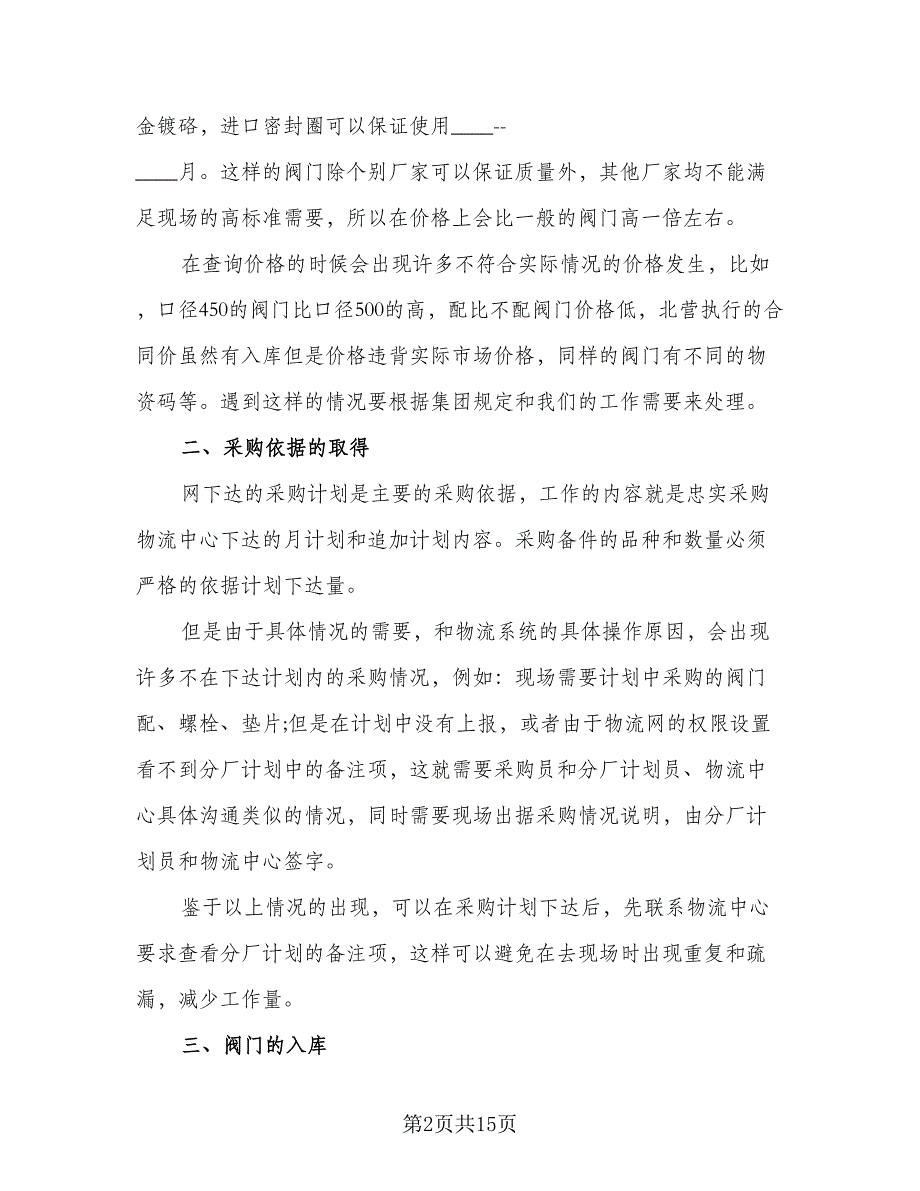 金镀硌，进口密封圈可以保证使用____--
____月。这样的阀门除个别厂家可以保证质量外，其他厂家均不能满
足现场的高标准需要，所以在价格上会比一般的阀门高一倍左右。
在查询价格的时候会出现许多不符合实际情况的价格发生，比如
，口径450的阀门比口径500的高，配比不配阀门价格低，北营执行的合
同价虽然有入库但是价格违背实际市场价格，同样的阀门有不同的物
资码等。遇到这样的情况要根据集团规定和我们的工作需要来处理。
二、采购依据的取得
网下达的采购计划是主要的采购依据，工作的内容就是忠实采购
物流中心下达的月计划和追加计划内容。采购备件的品种和数量必须
严格的依据计划下达量。
但是由于具体情况的需要，和物流系统的具体操作原因，会出现
许多不在下达计划内的采购情况，例如：现场需要计划中采购的阀门
配、螺栓、垫片;但是在计划中没有上报，或者由于物流网的权限设置
看不到分厂计划中的备注项，这就需要采购员和分厂计划员、物流中
心具体沟通类似的情况，同时需要现场出据采购情况说明，由分厂计
划员和物流中心签字。
鉴于以上情况的出现，可以在采购计划下达后，先联系物流中心
要求查看分厂计划的备注项，这样可以避免在去现场时出现重复和疏
漏，减少工作量。
三、阀门的入库
第2页共15页